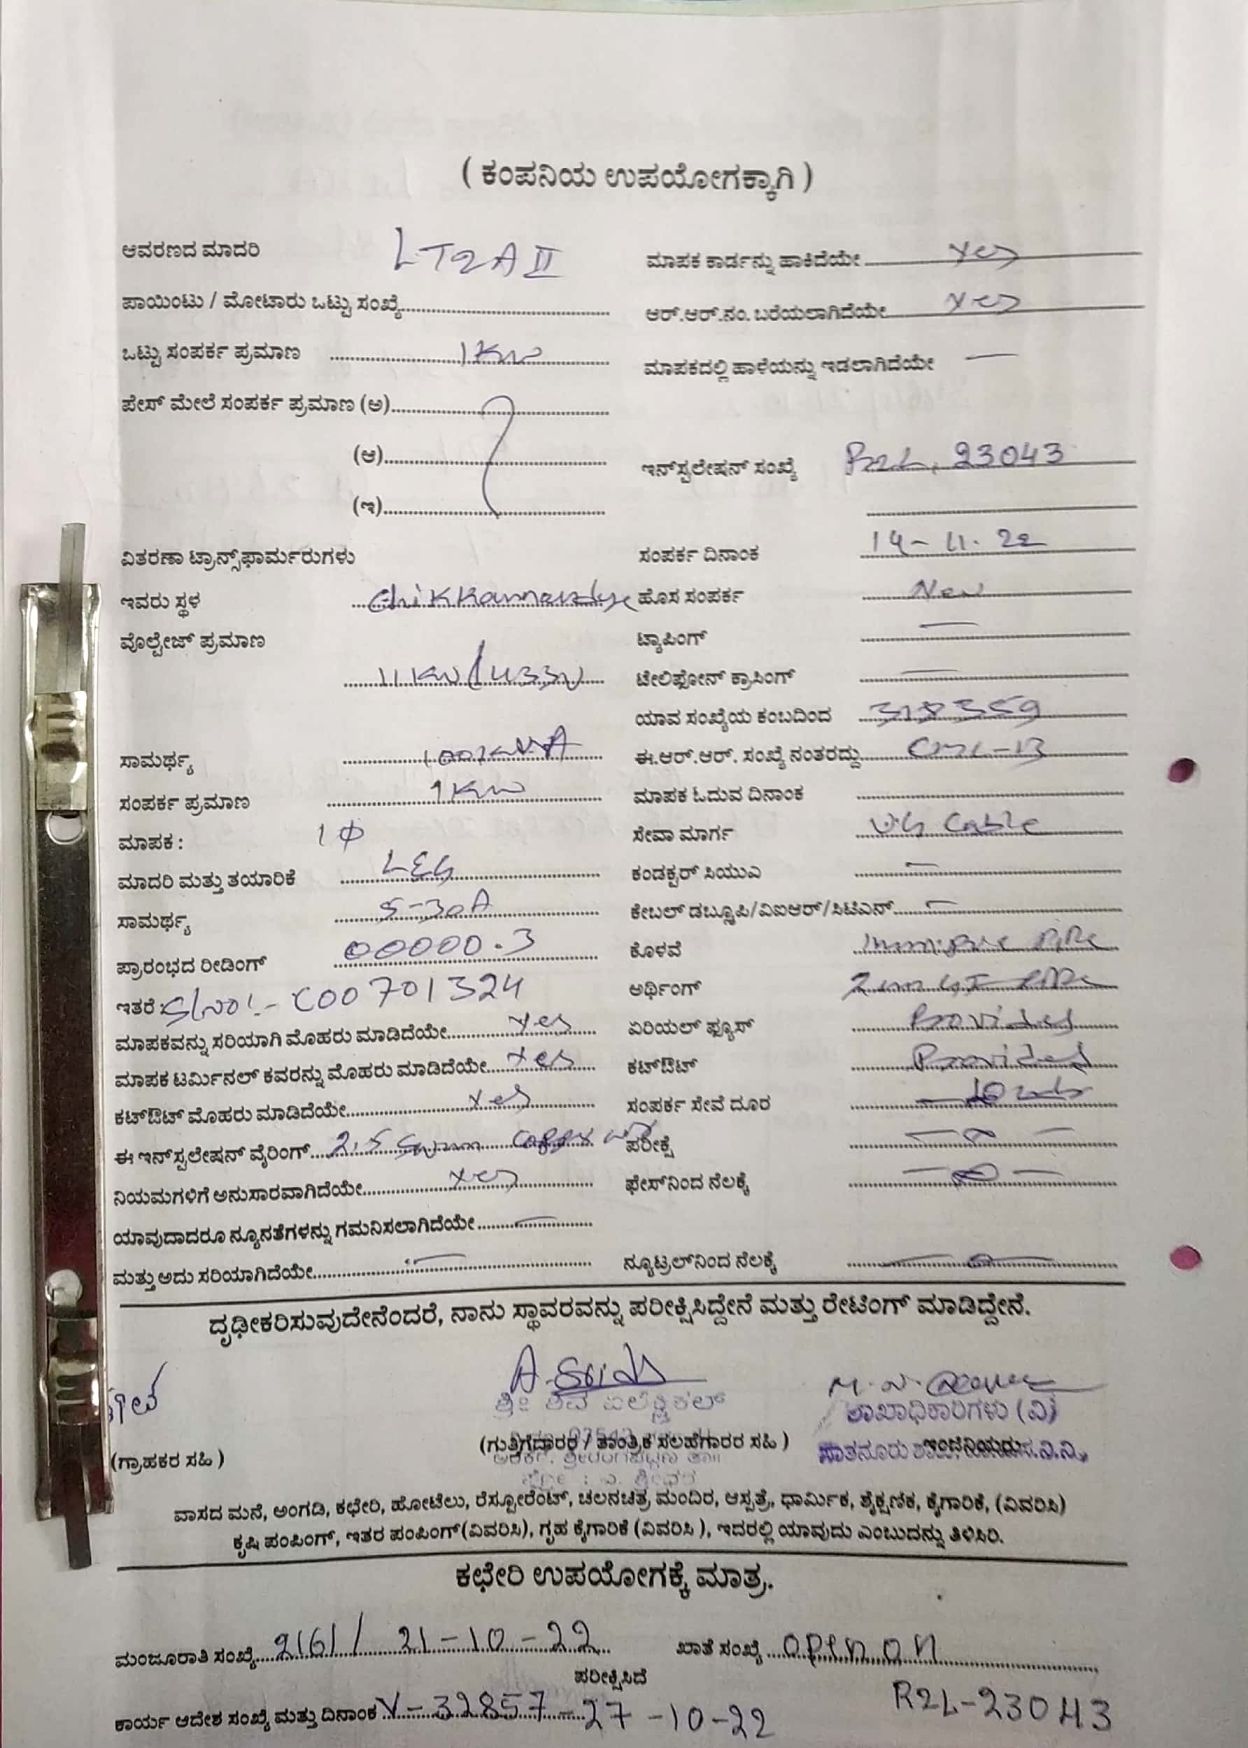 ( ಕಂಪನಿಯ ಉಪಯೋಗಕ್ಕಾಗಿ )
ಆವರಣದ ಮಾದರಿ LT2A II
ಮಾಪಕ ಕಾರ್ಡನ್ನು ಹಾಕಿದೆಯೇ yes
ಪಾಯಿಂಟು / ಮೋಟಾರು ಒಟ್ಟು ಸಂಖ್ಯೆ
ಆರ್.ಆರ್.ನಂ. ಬರೆಯಲಾಗಿದೆಯೇ yes
ಒಟ್ಟು ಸಂಪರ್ಕ ಪ್ರಮಾಣ 1KW
ಮಾಪಕದಲ್ಲಿ ಹಾಳೆಯನ್ನು ಇಡಲಾಗಿದೆಯೇ —
ಪೇಸ್ ಮೇಲೆ ಸಂಪರ್ಕ ಪ್ರಮಾಣ (ಅ)
(ಆ)
ಇನ್‌ಸ್ಟಲೇಷನ್ ಸಂಖ್ಯೆ R2L, 23043
(ಇ)
ವಿತರಣಾ ಟ್ರಾನ್ಸ್‌ಫಾರ್ಮರುಗಳು
ಸಂಪರ್ಕ ದಿನಾಂಕ 14-11-22
ಇವರು ಸ್ಥಳ
ಹೊಸ ಸಂಪರ್ಕ New
ವೊಲ್ಟೇಜ್ ಪ್ರಮಾಣ
ಟ್ಯಾಪಿಂಗ್ —
11KV/433V
ಟೇಲಿಫೋನ್ ಕ್ರಾಸಿಂಗ್ —
ಯಾವ ಸಂಖ್ಯೆಯ ಕಂಬದಿಂದ
ಸಾಮರ್ಥ್ಯ 100KVA
ಈ.ಆರ್.ಆರ್. ಸಂಖ್ಯೆ ನಂತರದ್ದು
ಸಂಪರ್ಕ ಪ್ರಮಾಣ 1KW
ಮಾಪಕ ಓದುವ ದಿನಾಂಕ
ಮಾಪಕ : 1 Φ
ಸೇವಾ ಮಾರ್ಗ UG Cable
ಮಾದರಿ ಮತ್ತು ತಯಾರಿಕೆ L&G
ಕಂಡಕ್ಟರ್ ಸಿಯುಎ —
ಸಾಮರ್ಥ್ಯ 5-30A
ಕೇಬಲ್ ಡಬ್ಲ್ಯೂಪಿ/ವಿಐಆರ್/ಸಿಟಿಎಸ್ —
ಪ್ರಾರಂಭದ ರೀಡಿಂಗ್ 00000.3
ಕೊಳವೆ
ಇತರೆ : S/No:- C00701324
ಅರ್ಥಿಂಗ್
ಮಾಪಕವನ್ನು ಸರಿಯಾಗಿ ಮೊಹರು ಮಾಡಿದೆಯೇ yes
ಏರಿಯಲ್ ಫ್ಯೂಸ್ Provided
ಮಾಪಕ ಟರ್ಮಿನಲ್ ಕವರನ್ನು ಮೊಹರು ಮಾಡಿದೆಯೇ yes
ಕಟ್‌ಔಟ್ Provided
ಕಟ್‌ಔಟ್ ಮೊಹರು ಮಾಡಿದೆಯೇ yes
ಸಂಪರ್ಕ ಸೇವೆ ದೂರ
ಈ ಇನ್‌ಸ್ಟಲೇಷನ್ ವೈರಿಂಗ್ 2.5 Sqmm Copper
ಪರೀಕ್ಷೆ
ನಿಯಮಗಳಿಗೆ ಅನುಸಾರವಾಗಿದೆಯೇ yes
ಫೇಸ್‌ನಿಂದ ನೆಲಕ್ಕೆ
ಯಾವುದಾದರೂ ನ್ಯೂನತೆಗಳನ್ನು ಗಮನಿಸಲಾಗಿದೆಯೇ —
ಮತ್ತು ಅದು ಸರಿಯಾಗಿದೆಯೇ —
ನ್ಯೂಟ್ರಲ್‌ನಿಂದ ನೆಲಕ್ಕೆ
ದೃಢೀಕರಿಸುವುದೇನೆಂದರೆ, ನಾನು ಸ್ಥಾವರವನ್ನು ಪರೀಕ್ಷಿಸಿದ್ದೇನೆ ಮತ್ತು ರೇಟಿಂಗ್ ಮಾಡಿದ್ದೇನೆ.
ಶ್ರೀ ಶಿವ ಎಲೆಕ್ಟ್ರಿಕಲ್
ಶಾಖಾಧಿಕಾರಿಗಳು (ವಿ)
(ಗ್ರಾಹಕರ ಸಹಿ )
(ಗುತ್ತಿಗೆದಾರರ / ತಾಂತ್ರಿಕ ಸಲಹೆಗಾರರ ಸಹಿ )
ಇಂಜಿನಿಯರು
ವಾಸದ ಮನೆ, ಅಂಗಡಿ, ಕಛೇರಿ, ಹೋಟೆಲು, ರೆಸ್ಟೋರೆಂಟ್, ಚಲನಚಿತ್ರ ಮಂದಿರ, ಆಸ್ಪತ್ರೆ, ಧಾರ್ಮಿಕ, ಶೈಕ್ಷಣಿಕ, ಕೈಗಾರಿಕೆ, (ವಿವರಿಸಿ)
ಕೃಷಿ ಪಂಪಿಂಗ್, ಇತರ ಪಂಪಿಂಗ್(ವಿವರಿಸಿ), ಗೃಹ ಕೈಗಾರಿಕೆ (ವಿವರಿಸಿ ), ಇದರಲ್ಲಿ ಯಾವುದು ಎಂಬುದನ್ನು ತಿಳಿಸಿರಿ.
ಕಛೇರಿ ಉಪಯೋಗಕ್ಕೆ ಮಾತ್ರ.
ಮಂಜೂರಾತಿ ಸಂಖ್ಯೆ 2161/ 21-10-22
ಖಾತೆ ಸಂಖ್ಯೆ
ಪರೀಕ್ಷಿಸಿದೆ
ಕಾರ್ಯ ಆದೇಶ ಸಂಖ್ಯೆ ಮತ್ತು ದಿನಾಂಕ V-32857-27-10-22
R2L-23043